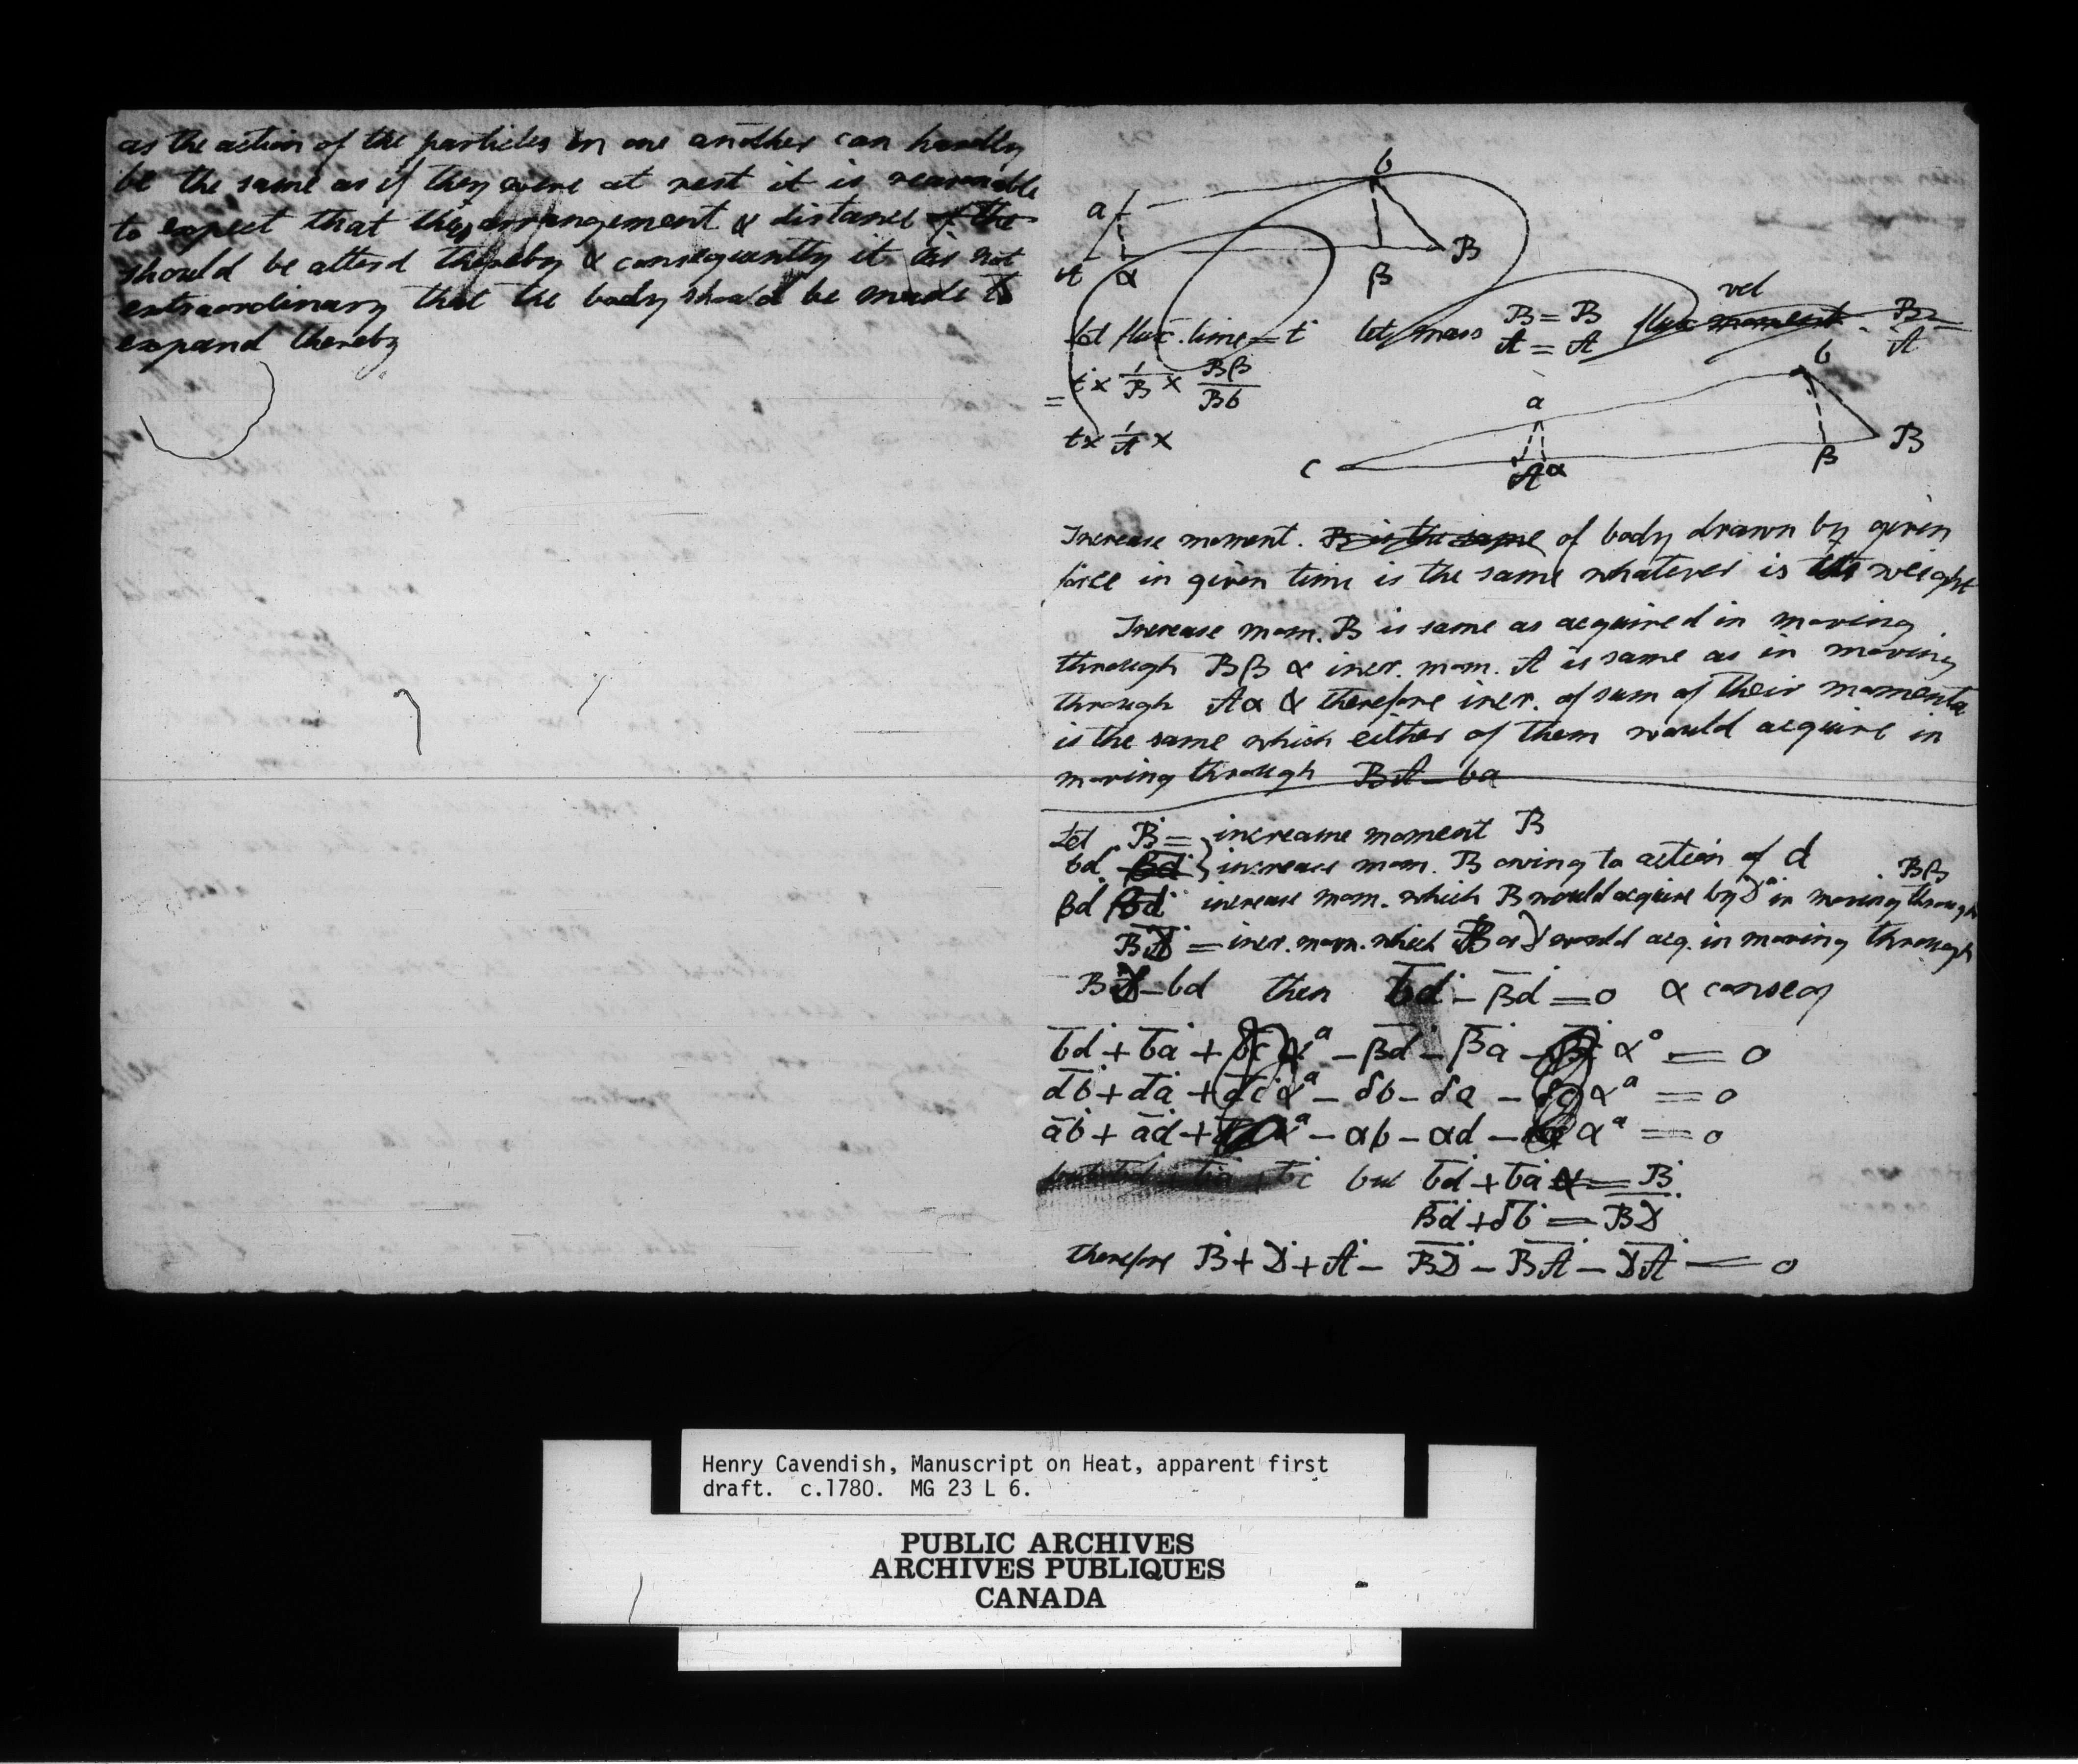 as the action of the particles on one another can hardly
be the same as if they were at rest it is reasonable
to expect that their arrangement & distance of the
should be alterd thereby & consequently it is not
extraordinary that the body should be made to
expand thereby
b
a
A α β B
let flux. time = ṫ let mass B = B flux moment vel
A = A
= ṫ × 1/B × Bβ/Bb
ṫ × 1/A ×
b
a
C A α β B
Increase moment. B is the same of body drawn by given
force in given time is the same whatever is its weight
Increase mom. B is same as acquired in moving
through Bβ & incr. mom. A is same as in moving
through Aα & therefore incr. of sum of their momenta
is the same which either of them would acquire in
moving through BA - ba
Let Ḃ = increase moment B
bd increase mom. B owing to action of d
βd increase mom. which B would acquire by D in moving through Bβ
BD = incr. mom. which B or D would acq. in moving through
BD - bd then bd - βd = 0 & conseq
bd + ba + bc &^a - βd - βa - βc &^a = 0
db + da + dc &^a - δb - δa - δc &^a = 0
ab + ad + &^a - αb - αd - &^a = 0
but bd + ba & = Ḃ
βd + δb = BD
therefore Ḃ + Ḋ + Ȧ - BD - BA - DA = 0
Henry Cavendish, Manuscript on Heat, apparent first
draft. c.1780. MG 23 L 6.
PUBLIC ARCHIVES
ARCHIVES PUBLIQUES
CANADA